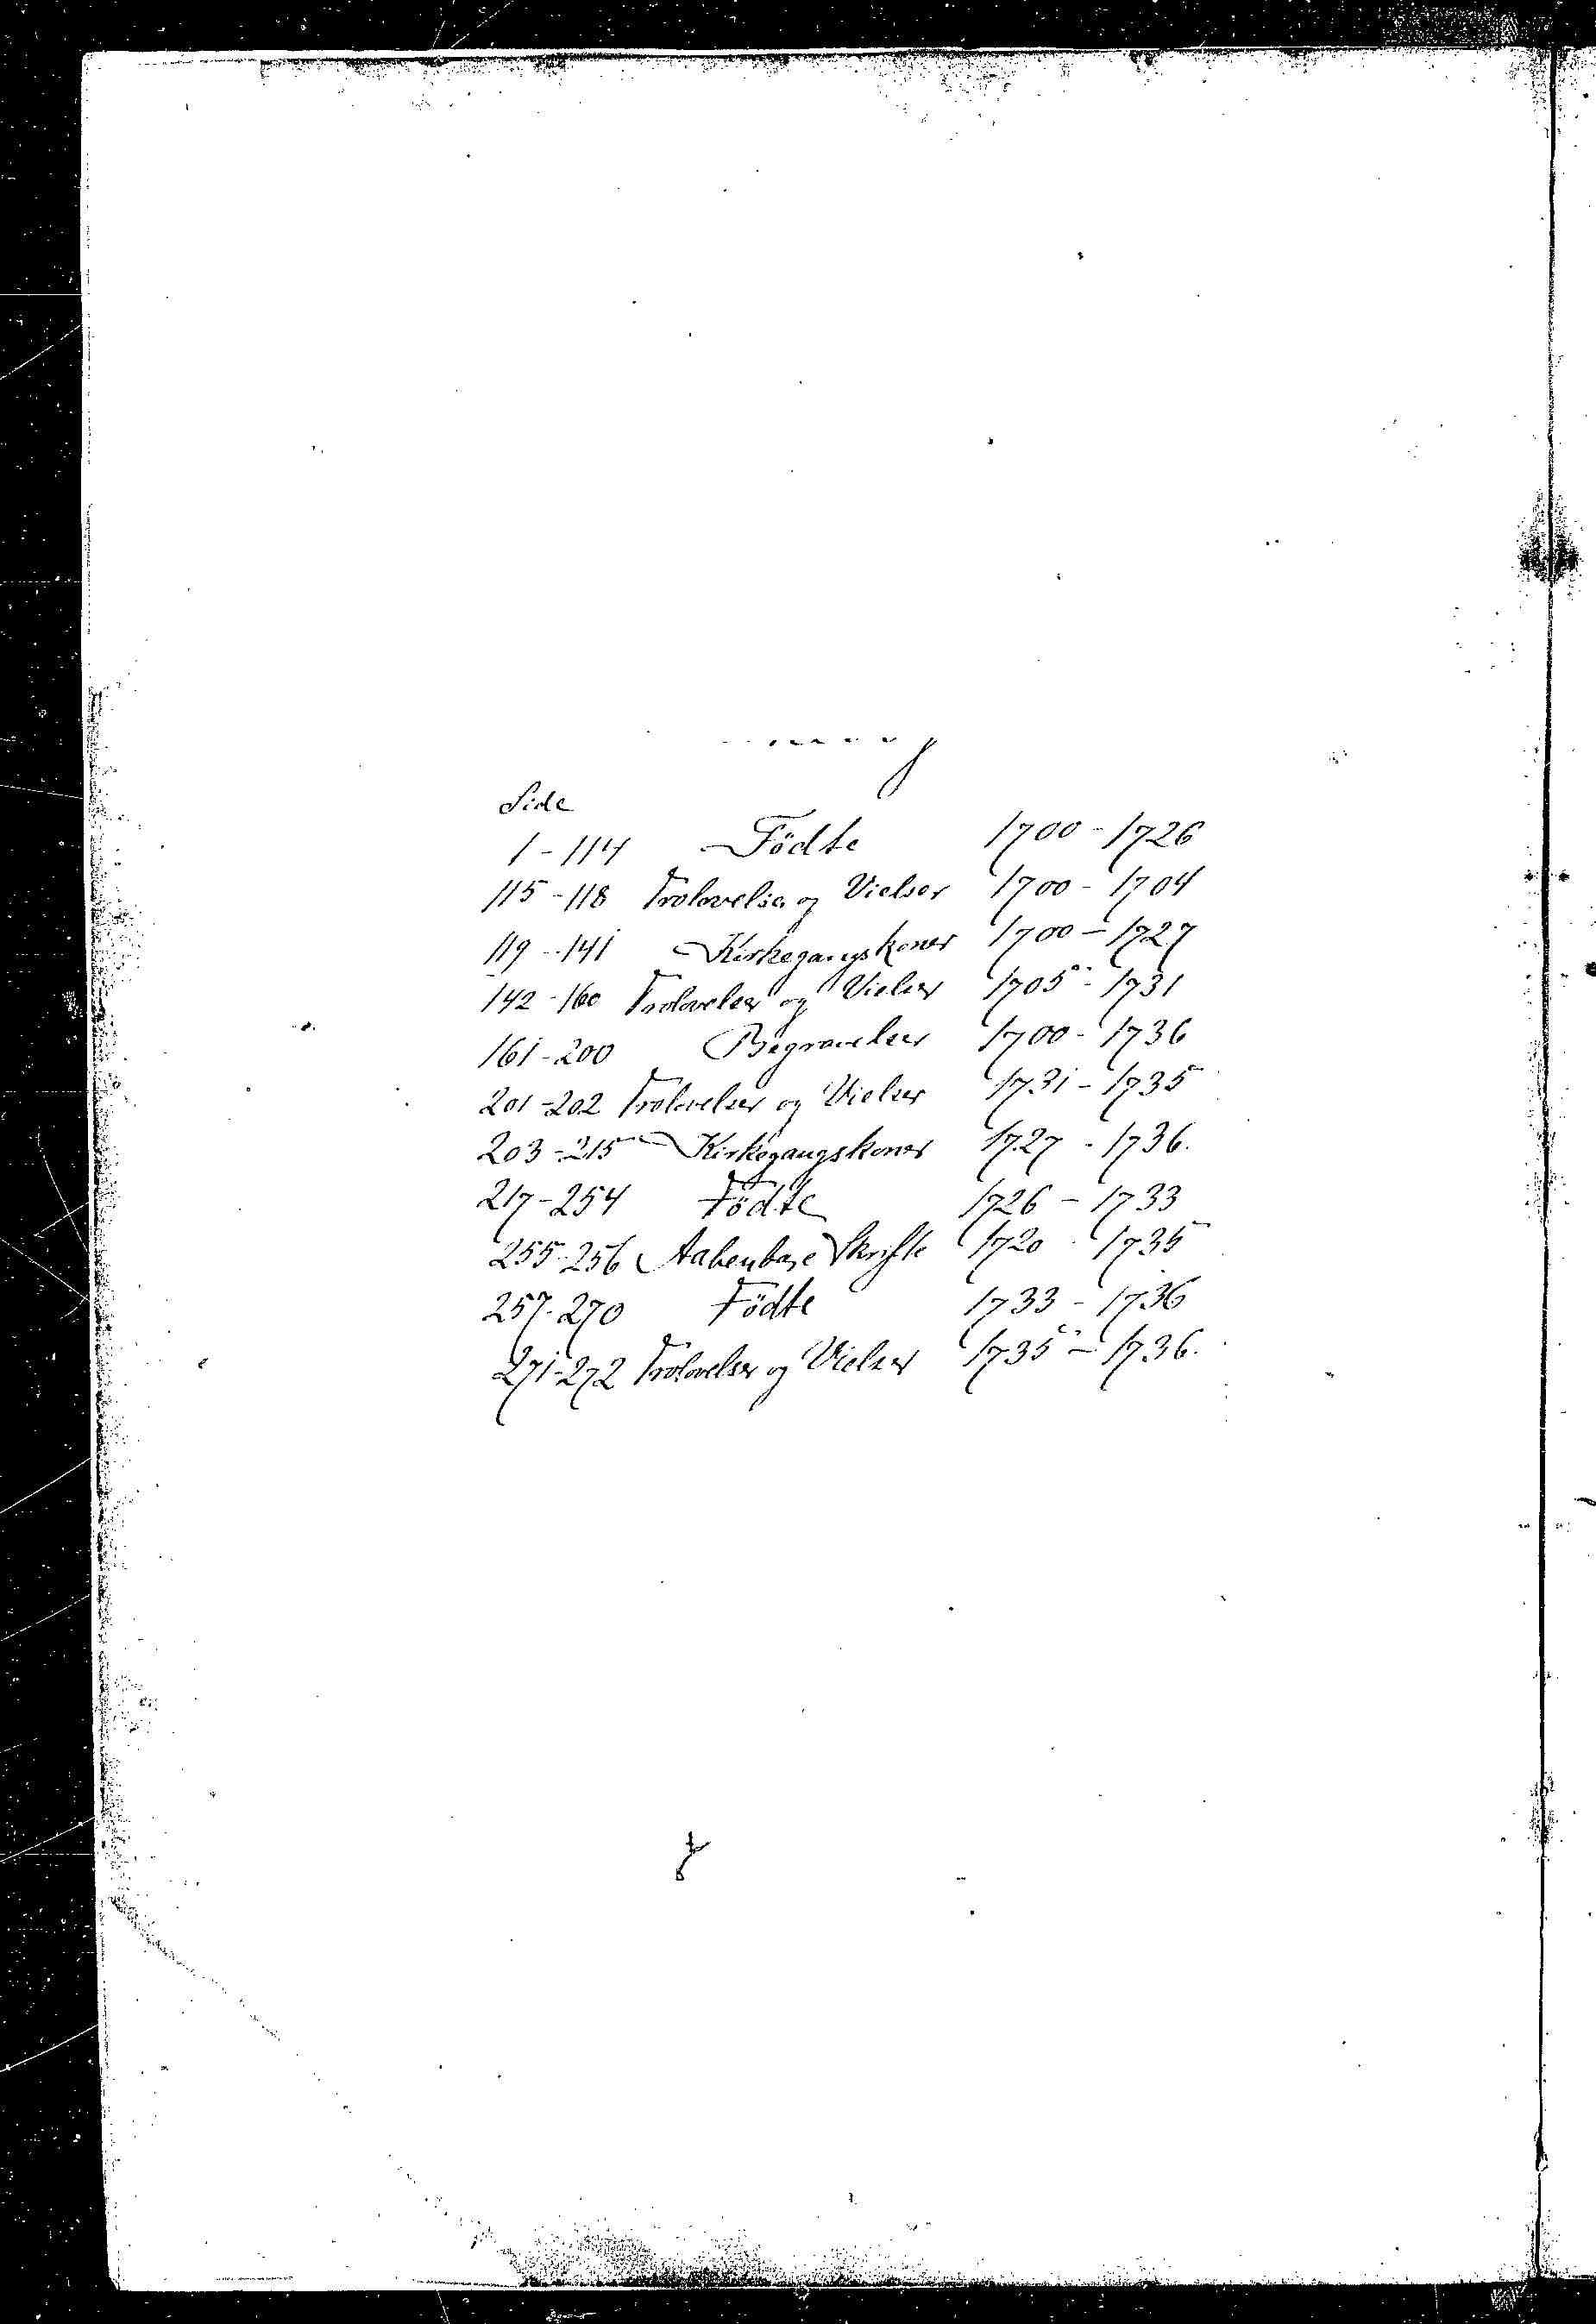 Side
1-114 Födte 1700-1726
115-118 Trolovelser og Vielser 1700-1704
119-141 Kirkegangskoner 1700-1727
142-160 Trolovelser og Vielser 1705-1731
161-200 Begravelser 1700-1736
201-202 Trolovelser og Vielser 1731-1735
203-215 Kirkegangskoner 1727-1736.
217-254 Födte 1726-1733
255-256 Aabenbare Skrifte 1720-1735
257-270 Födte 1733-1736
271-272 Trolovelser og Vielser 1735-1736.